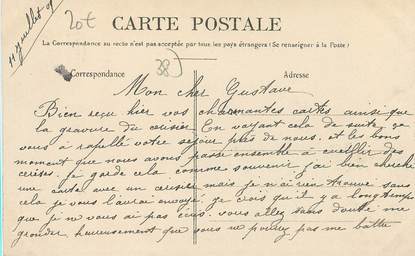 20€
11 Juillet 09
CARTE POSTALE
La Correspondance au recto n'est pas acceptée par tous les pays étrangers (Se renseigner à la Poste)
38)
Correspondance
Adresse
Mon cher Gustave
Bien reçu hier vos charmantes cartes ainsi que
la gravure du cerisier En voyant cela de suite, ça
vous a rapellé votre séjour près de nous. et les bons
moment que nous avons passé ensemble à cueillir des
cerises. je garde cela comme souvenir j'ai bien cherché
une carte avec un cerisier mais je n'ai rien trouvé sans
cela je vous l'aurai envoyé. je crois qu'il y a longtemps
que je ne vous ai pas écris. vous allez sans doute me
gronder heureusement que vous ne pouvez pas me battre